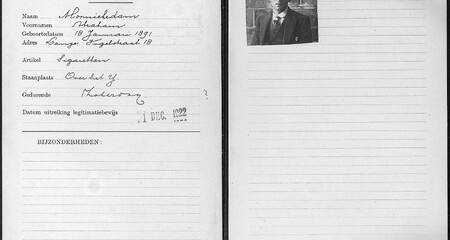 Naam Monnickedam
Voornamen Abraham
Geboortedatum 18 Januari 1891
Adres Lange Vogelstraat 18
Artikel Sigaretten
Staanplaats Over het Y
Gedurende ?
Datum uitreiking legitimatiebewijs 1 DEC. 1922
BIJZONDERHEDEN: